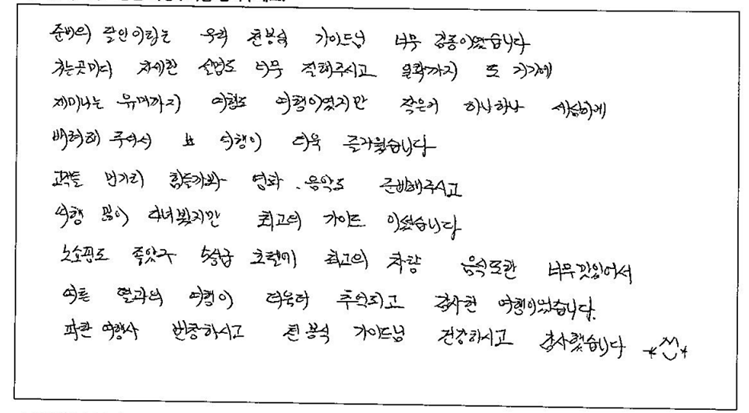 준비의 달인이라는 우리 전봉석 가이드님 너무 감동이였습니다
가는곳마다 자세한 설명도 너무 잘해주시고 일화까지 또 거기에
재미나는 유머까지 여행도 여행이였지만 작은거 하나하나 세심하게
배려해 주셔서 더 여행이 더욱 즐거웠습니다
고객들 먼거리 힘들까봐 영화, 음악도 준비해주시고
여행 많이 다녀봤지만 최고의 가이드 이셨습니다
노쇼핑도 좋았구 5성급 호텔에 최고의 차량 음식또한 너무맛있어서
여행이 더욱더 추억되고 감사한 여행이었습니다.
파란 여행사 번창하시고 전봉석 가이드님 건강하시고 감사했습니다